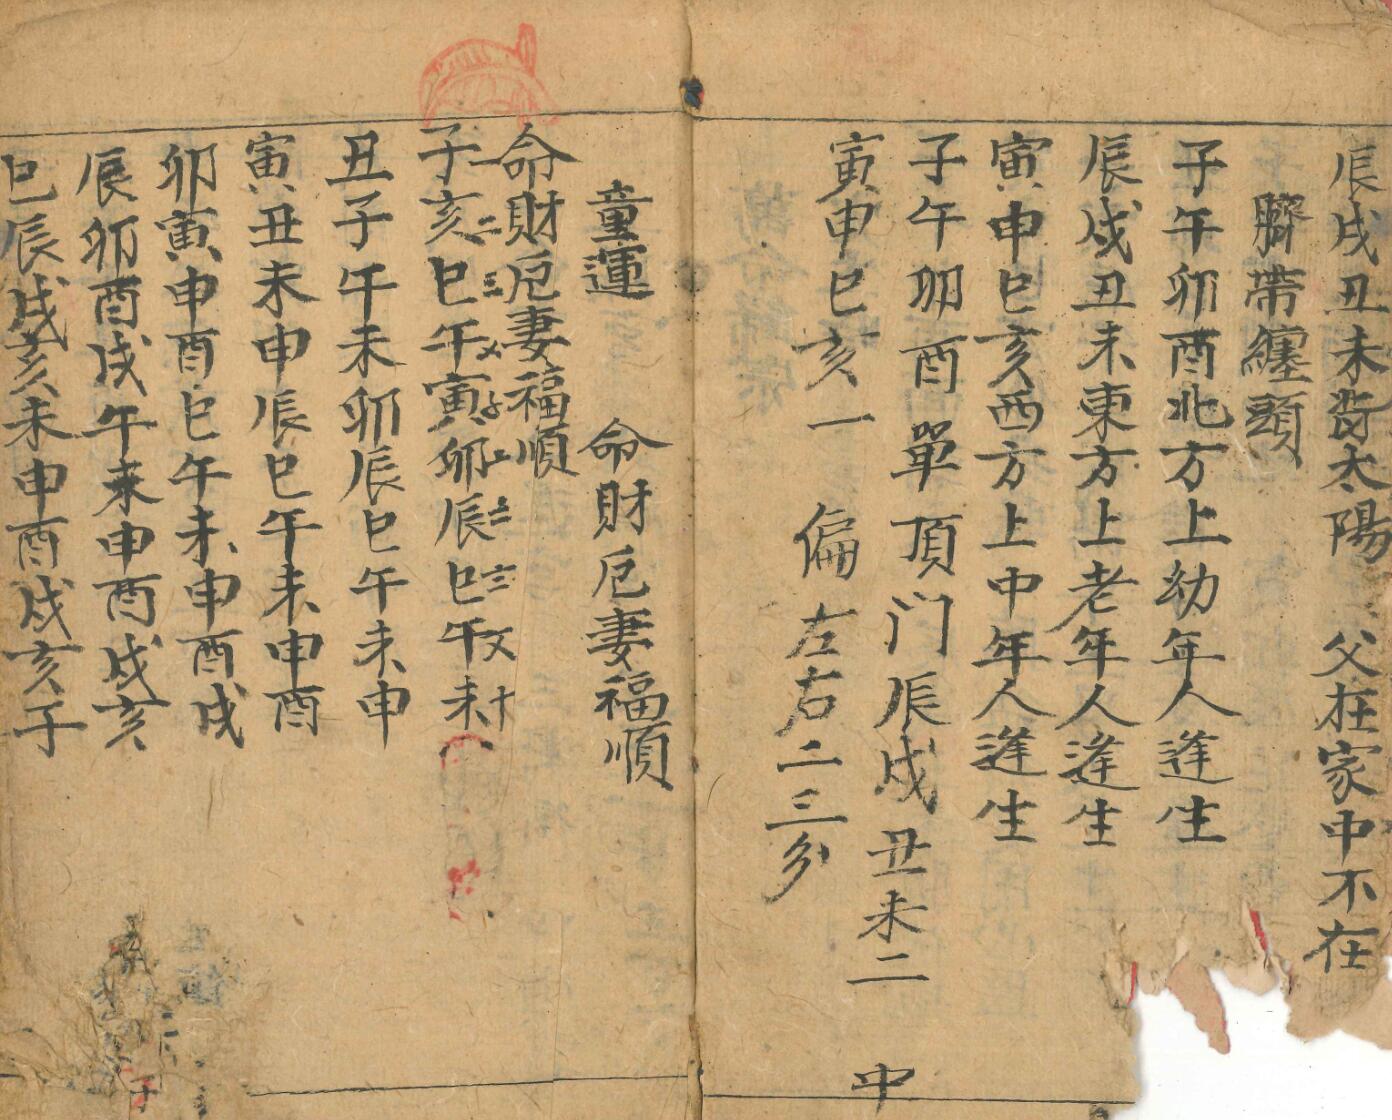 辰戌丑未时太陽 父在家中不在
臍帶纏頭
子午卯酉北方上幼年人逢生
辰戌丑未東方上老年人逢生
寅申巳亥西方上中年人逢生
子午卯酉單頂门辰戌丑未二中
寅申巳亥一偏左右二三分
童運 命財厄妻福順
命財厄妻福順
一二三
十
子亥巳午寅卯辰巳午未
丑子午未卯辰巳午未申
寅丑未申辰巳午未申酉
卯寅申酉巳午未申酉戌
辰卯酉戌午未申酉戌亥
巳辰戌亥未申酉戌亥子